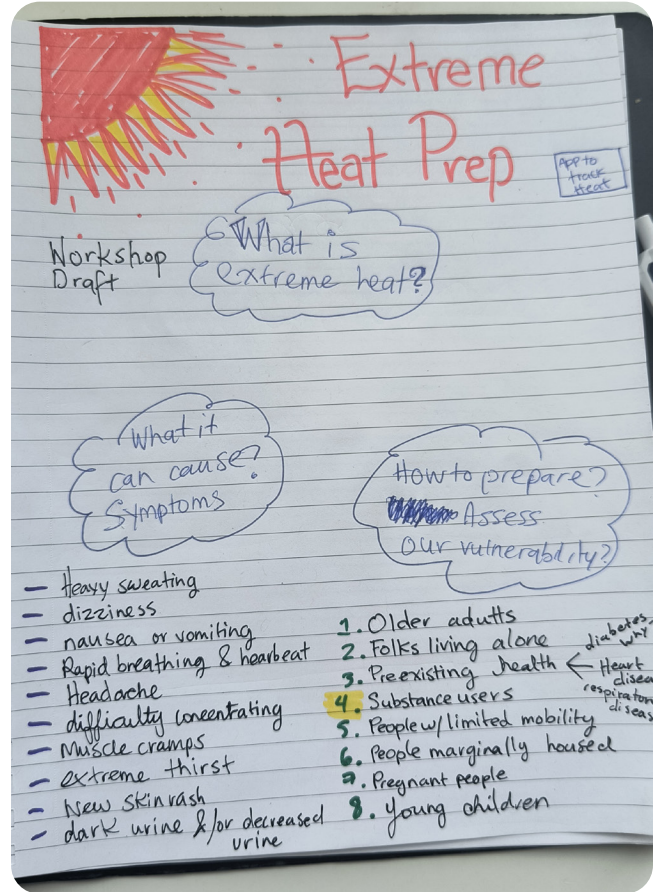 Extreme
Heat Prep
App to
track
Heat
Workshop
Draft
What is
extreme heat?
What it
can cause?
Symptoms
- Heavy sweating
- dizziness
- nausea or vomiting
- Rapid breathing & hearbeat
- Headache
- difficulty concentrating
- Muscle cramps
- extreme thirst
- New skin rash
- dark urine &/or decreased
urine
How to prepare?
Assess
Our vulnerability?
1. Older adults
2. Folks living alone
3. Preexisting health
diabetes
why
Heart
disea
respirator
diseas
4. Substance users
5. People w/ limited mobility
6. People marginally housed
7. Pregnant people
8. Young children